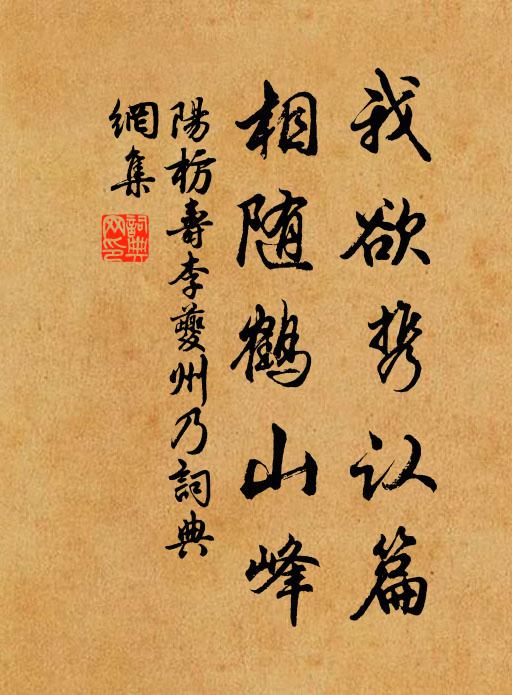 我欲携认篇
相随鹤山峰
陽枋壽李夔州乃詞典
網集
詞典網印